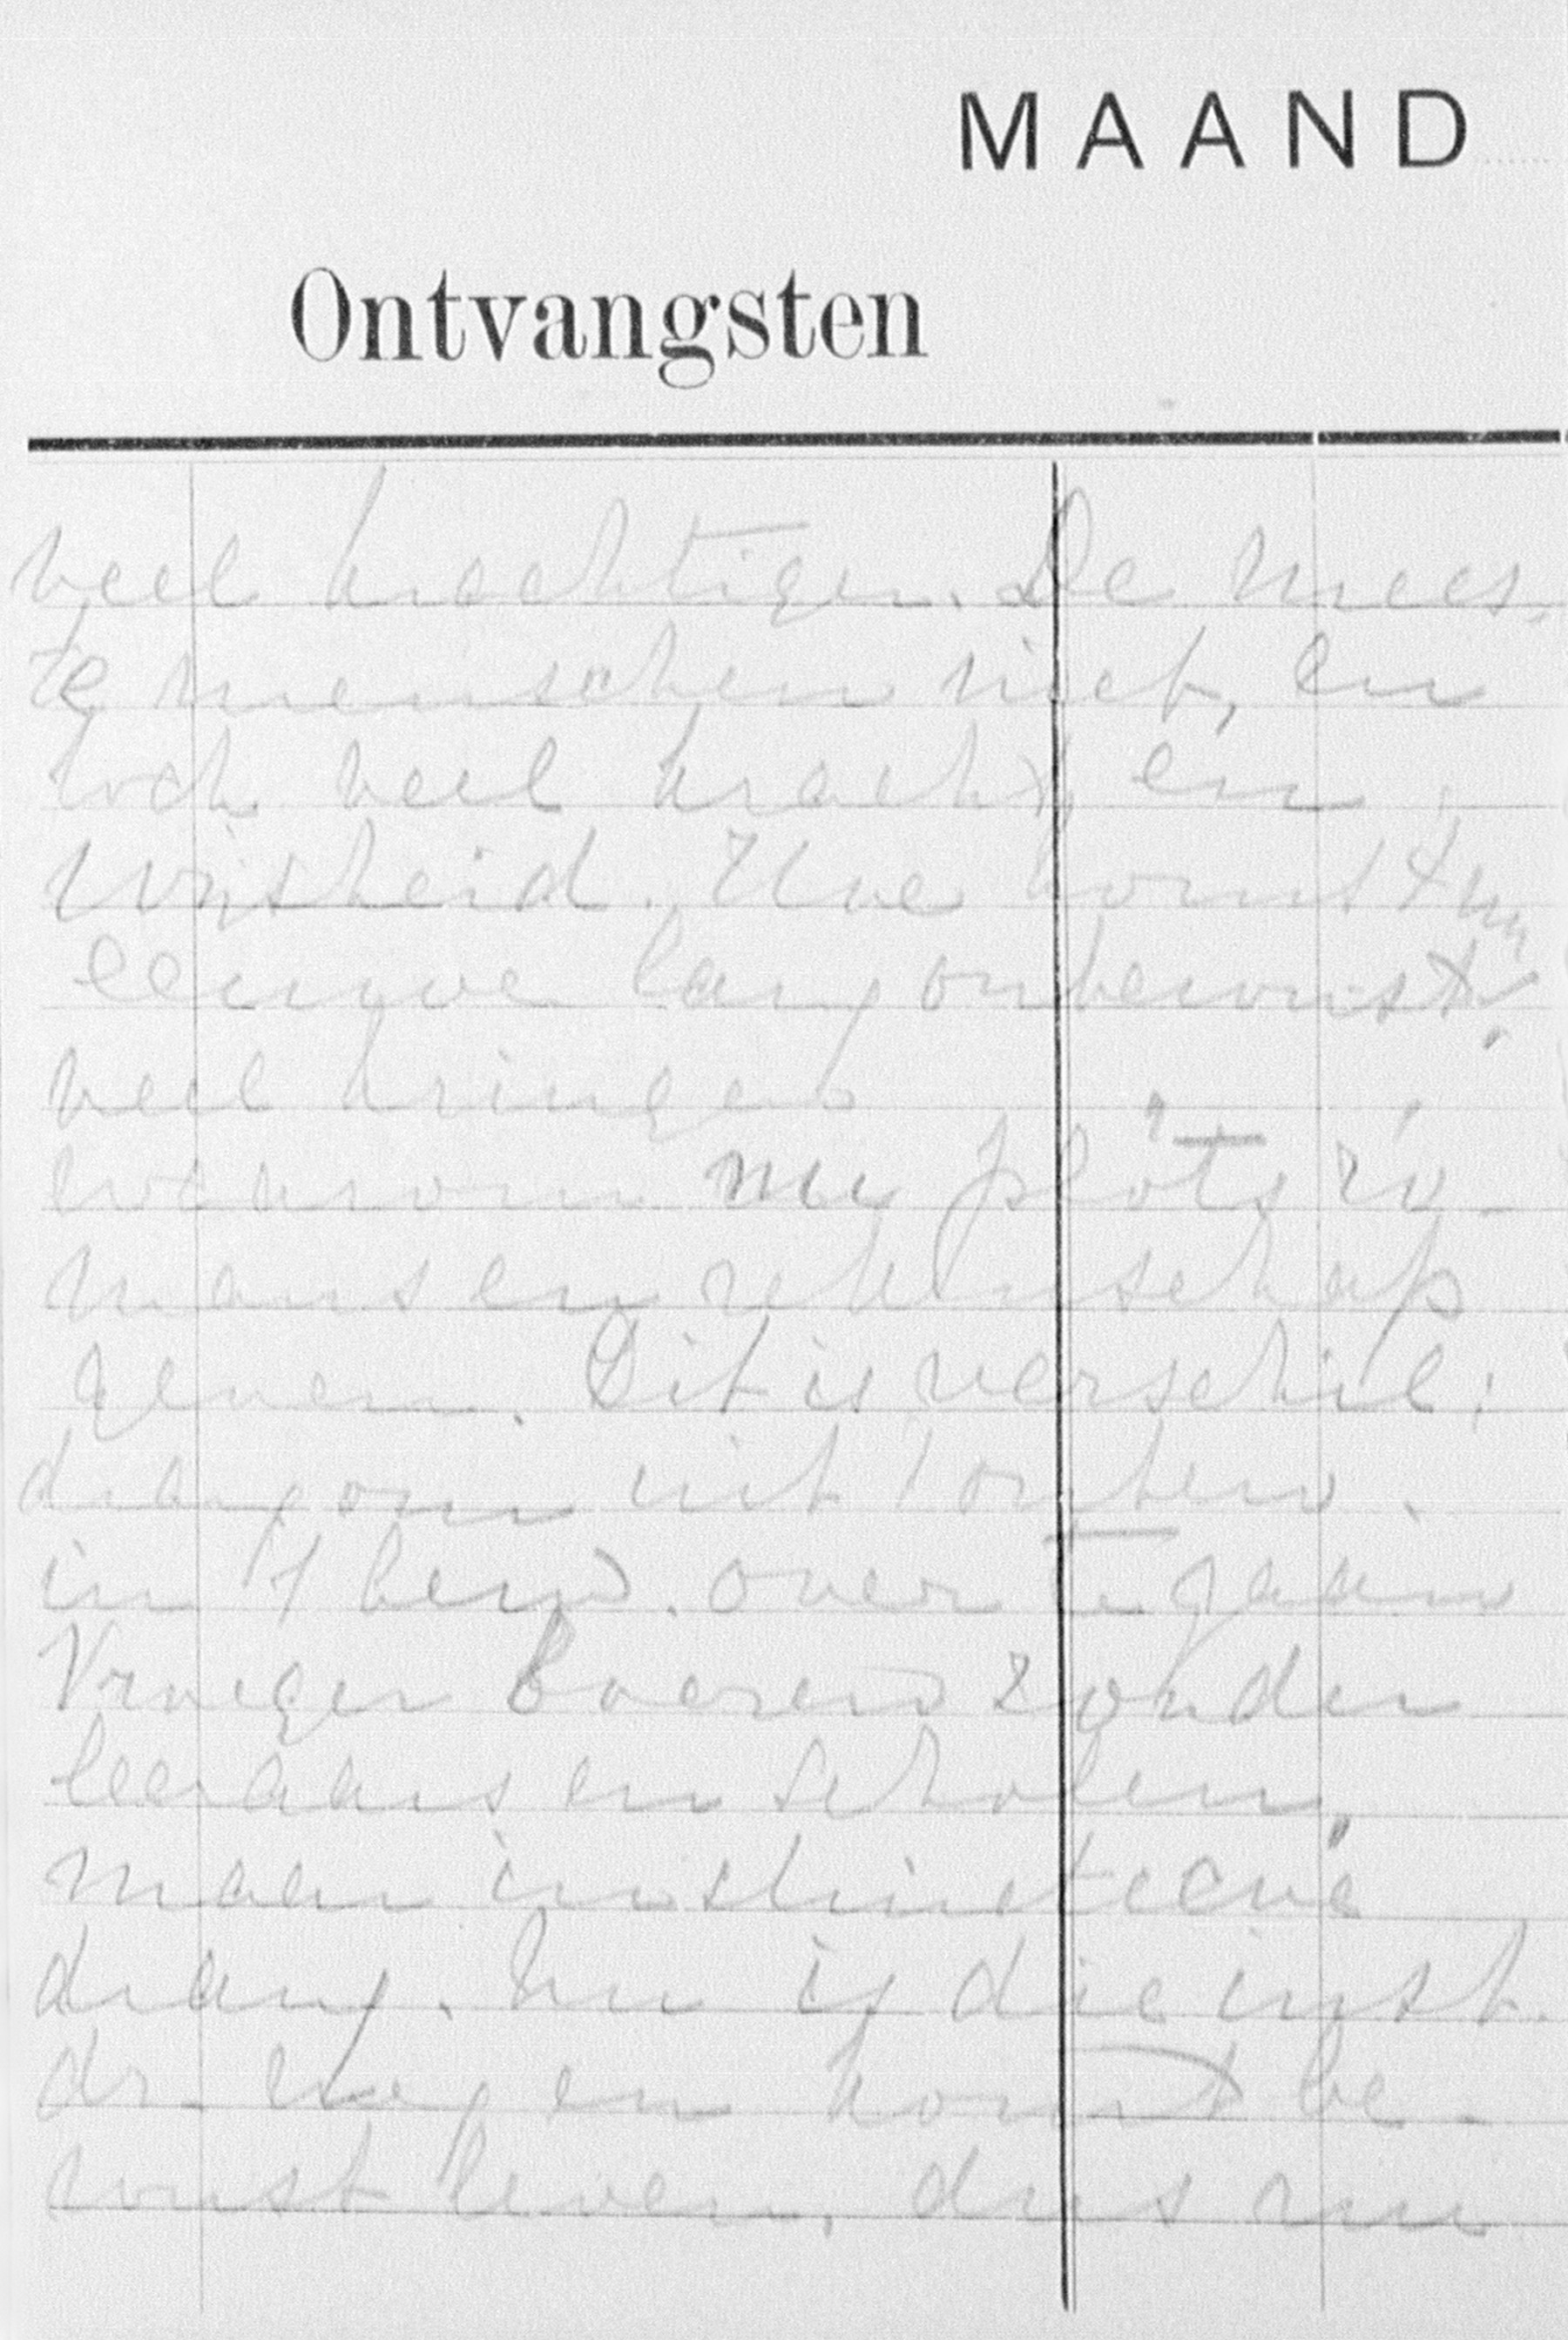 MAAND
Ontvangsten
veel krachtiger. De mees-
te menschen niet, en
toch veel kracht, en
wijsheid. Hoe komt 't
eeuwen lang onbewust,
veel
waarom nu plots ro-
mans en rekenschap
geven. Dit is verschil:
drang om uit 't onbew.
in 't bew. over te gaan
Vroeger boeren zonder
leeraars en scholen,
maar instinctieve
drang. Nu is die inst.
dr. weg en komt be-
wust leven, dus nu